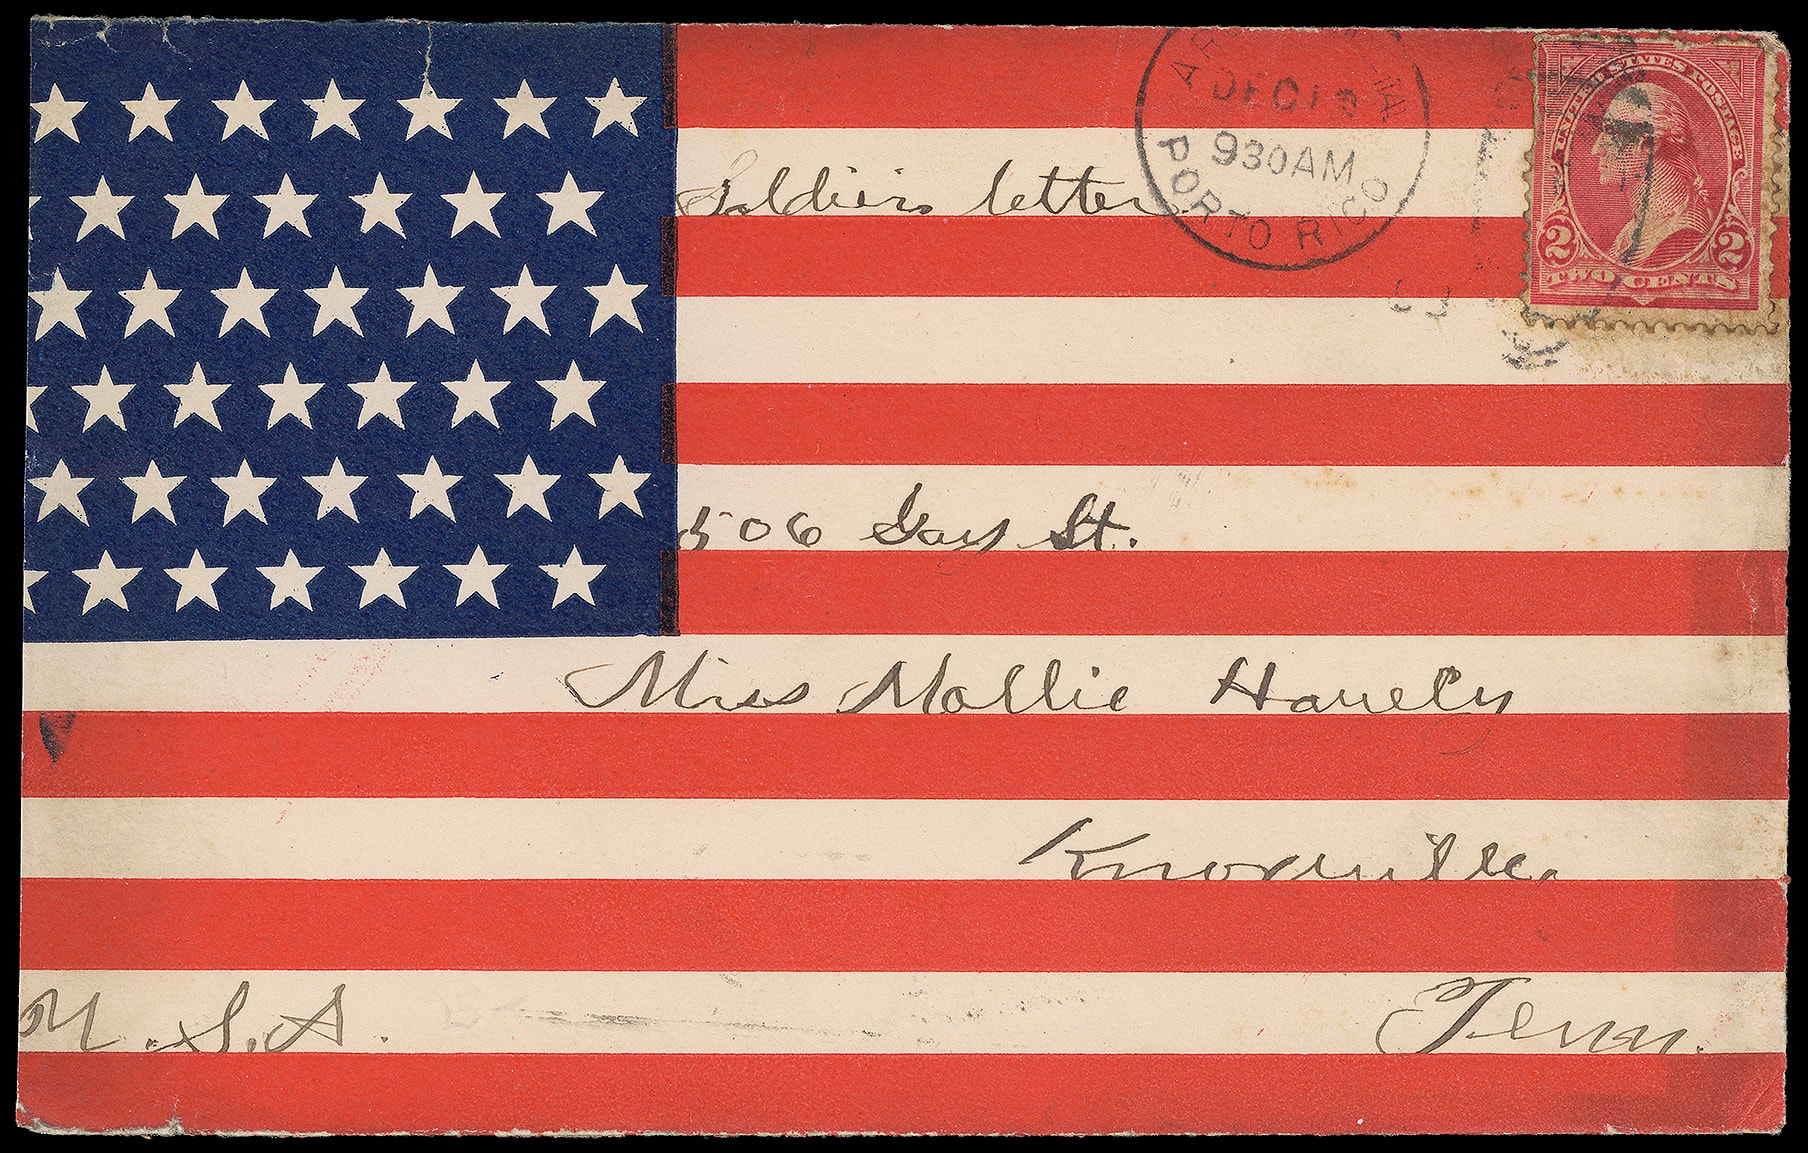 DEC 19
930AM
PORTO RICO
UNITED STATES POSTAGE
2 2
TWO CENTS
Soldiers letter
506 Gay St.
Miss Mollie
Knoxville,
Tenn.
U.S.A.